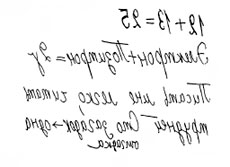 12+13=25
Электрон+Позитрон=2γ
Писать мне легко читать
труднее Сто загадок→одна
отгадка